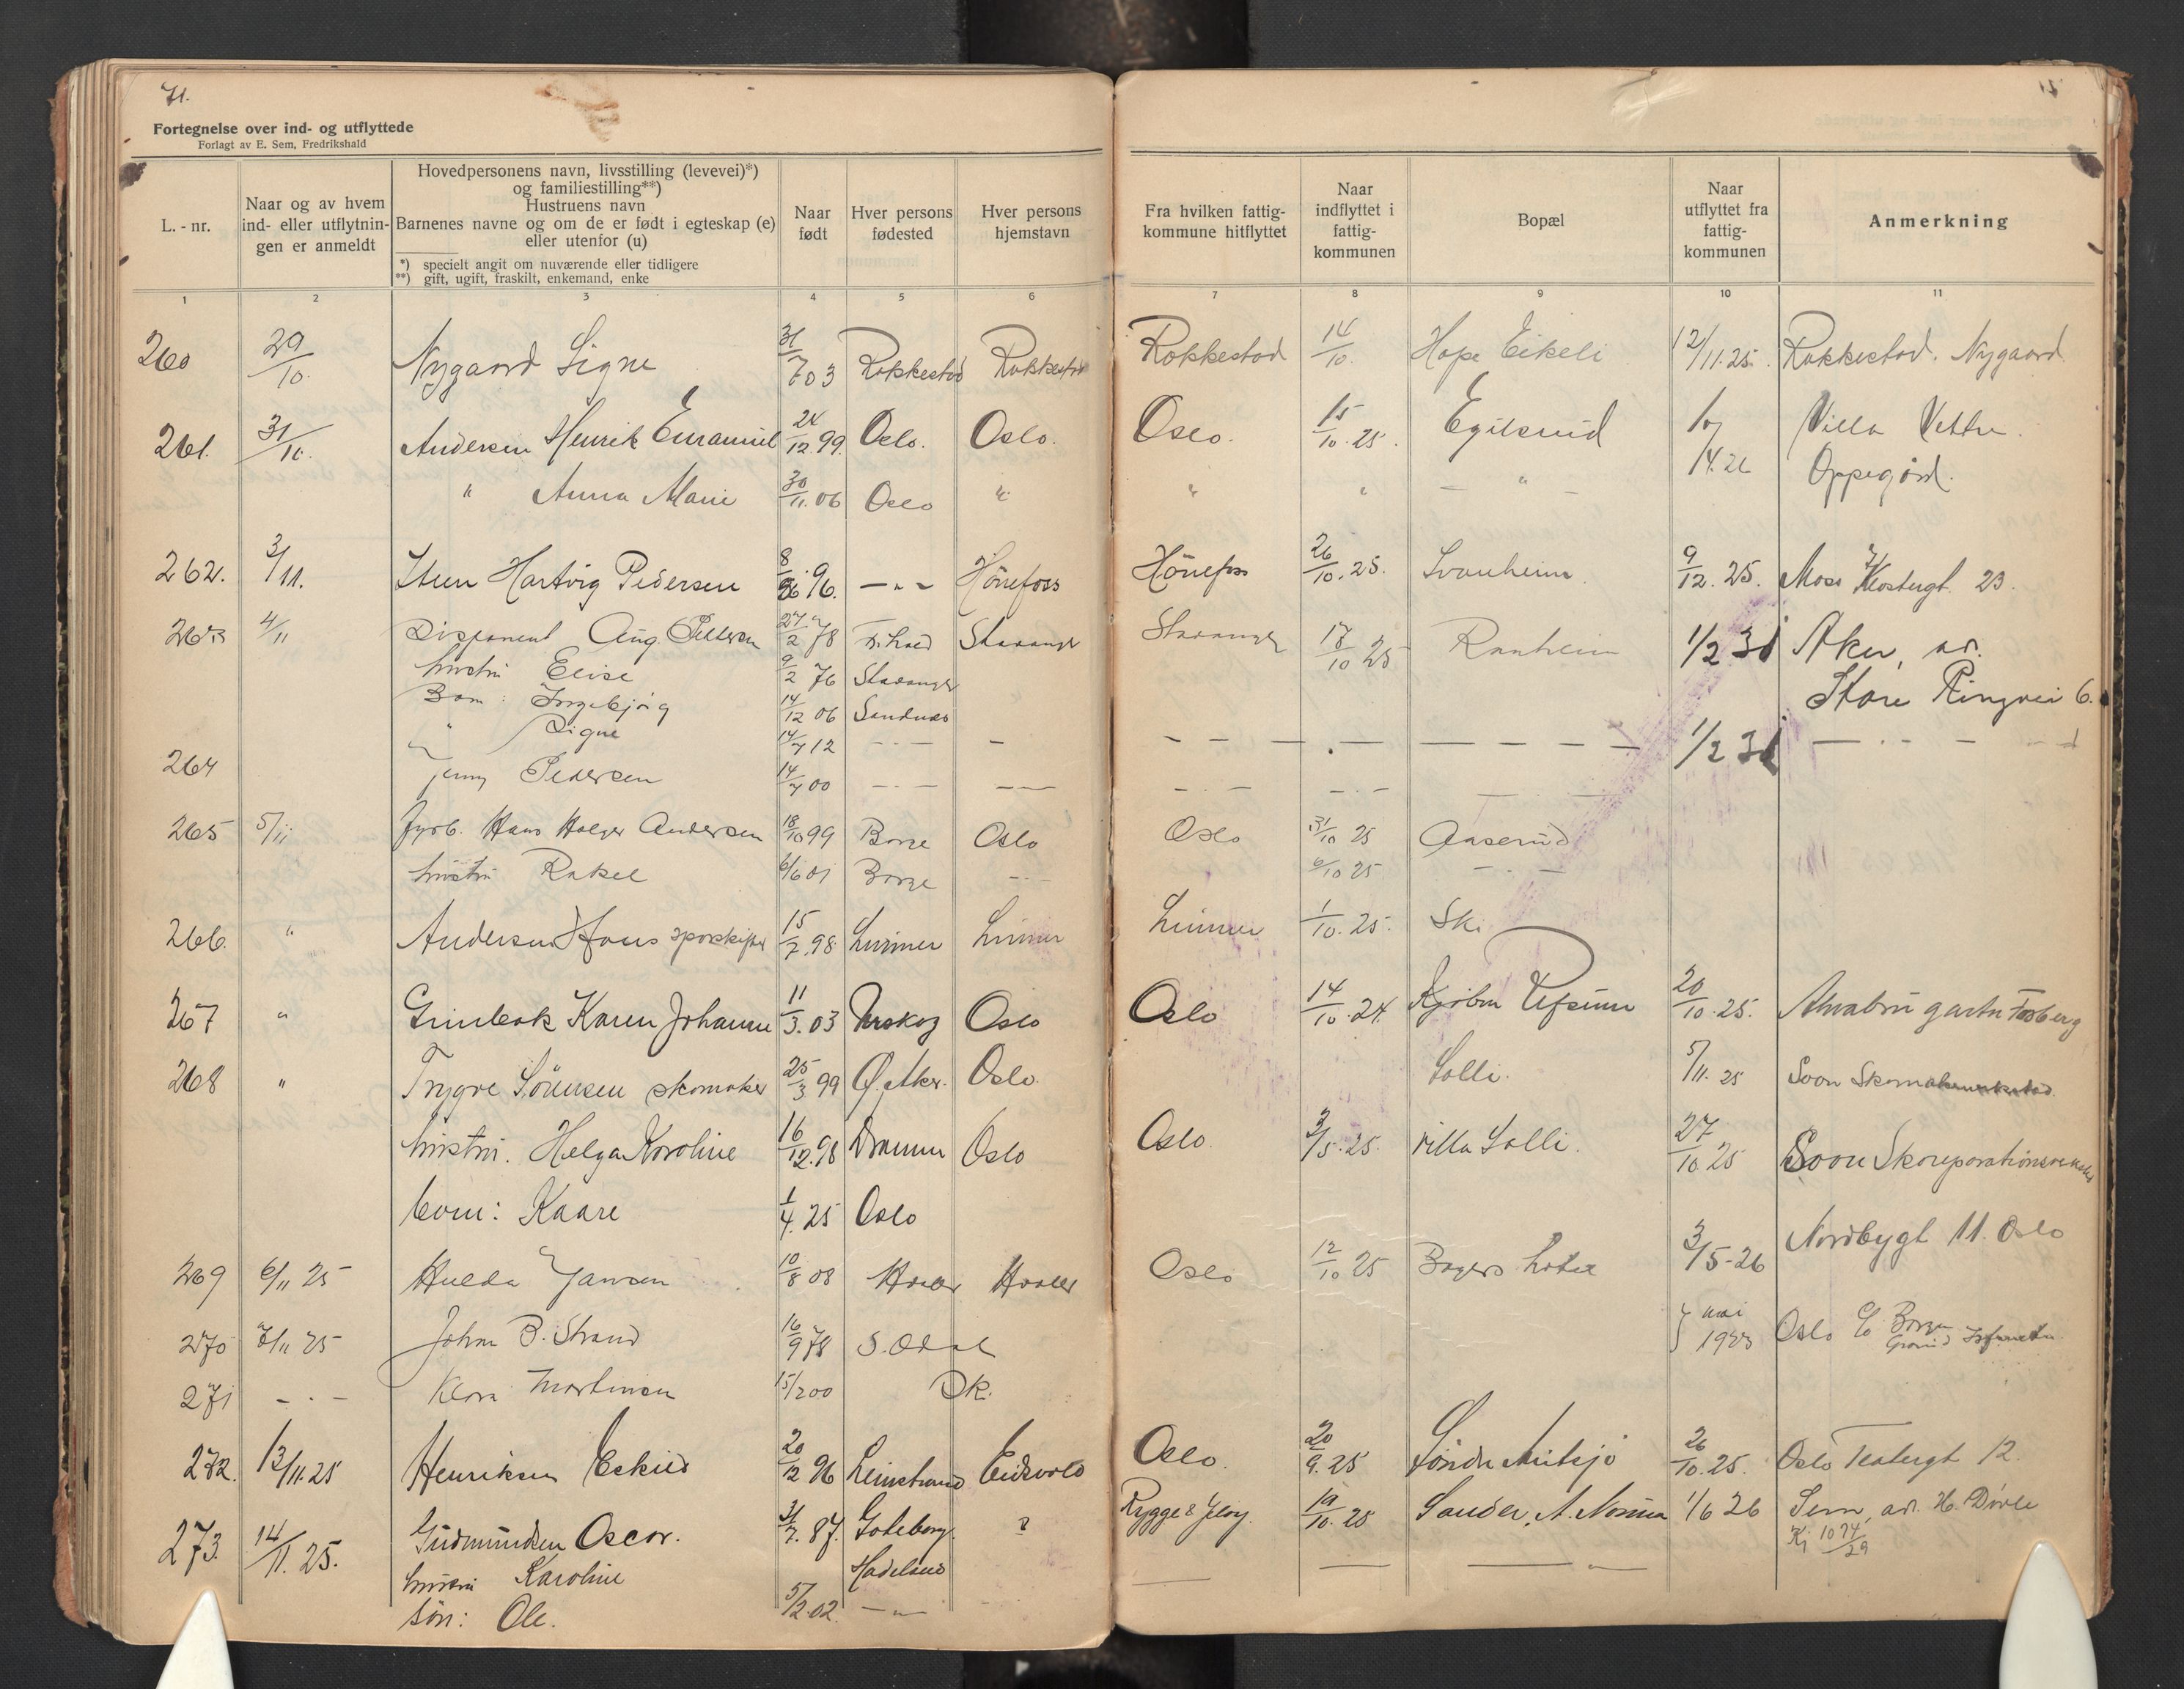 71.
Fortegnelse over ind- og utflyttede
Forlagt av E. Sem, Fredrikshald
L.-nr.
Naar og av hvem ind- eller utflytnin- gen er anmeldt
Hovedpersonens navn, livsstilling (levevei)*)
og familiestilling**)
Hustruens navn
Barnenes navne og om de er født i egteskap (e)
eller utenfor (u)
*) specielt angit om nuværende eller tidligere
**) gift, ugift, fraskilt, enkemand, enke
Naar født
Hver persons fødested
Hver persons hjemstavn
Fra hvilken fattig- kommune hitflyttet
Naar indflyttet i fattig- kommunen
Bopæl
Naar utflyttet fra fattig- kommunen
Anmerkning
1 2 3 4 5 6 7 8 9 10 11
260 29/10. Nygaard Signe 31/7 03 Rakkestad Rakkestad Rakkestad 14/10. Hope Eikeli 12/11.25. Rakkestad. Nygaard
261. 31/10. Andersen Henrik Emanuel 24/12.99. Oslo. Oslo. Oslo. 15/10.25. Egilsrud 1/4.26 Villa Vettre.
" Anna Marie 30/11.06 Oslo " " " — " — Oppegård.
262. 3/11. Steen Hartvig Pedersen 8/9 96. — " — Hönefoss Hönefoss 26/10.25. Svanheim 9/12.25. Moss Klostergt. 23.
263 4/11 Disponent Aug Pettersen 27/2 78 Fr.hald Stavanger Stavanger 17/10 25 Ranheim 1/2 31 Aker, ad.
hustru Elise 9/2 76 Stavanger
Store Ringvei 6.
Barn: Ingebjørg 14/12 06 Sandnes
" Signe 14/7 12 — - — — 1/2 31
264 Jenny Pedersen 14/7 00 — - — — - —
265 5/11 Hans Holger Andersen 18/10 99 Borge Oslo Oslo 31/10 25 Aaserud
hustru Rakel 6/6 01 Borge — - — 6/10 25 — - —
266. " Andersen Hans sporskifter 15/2.98. Lunner Lunner Lunner 1/10.25. Ski
267 " Karen Johanne 11/3.03 Urskog Oslo Oslo 14/10.24. Kjøbm Ufsum 20/10.25. Alnabru gartn Fosberg
268 " Trygve Sörensen skomaker 25/3 99 Ø. Aker. Oslo. Solli. 5/11.25 Soon Skomakerverksted
hustru. Helga Karoline 16/12.98 Drammen Oslo Oslo. 3/5.25. Villa Solli. 27/10 25 Soon Skoreparationsverksted
barn: Kaare 1/4.25 Oslo
269 6/11 25 Hulda Jansen 10/8 08 Hvaler Hvaler Oslo 12/10 25 Bøgers hotel 3/5-26 Nordbygt 11. Oslo
270 7/11 25 Johan B. Strand 16/9 78 S. Odal mai 1925 Oslo c/o
271 — - — Klara Martinsen 15/2 00 Dk.
272. 13/11.25 Henriksen Eskild 20/12 96 Leinstrand Eidsvold Oslo. 20/9.25 Söndre Mitsjö 26/10.25. Oslo Teatergt 12.
273. 14/11.25. Gudmundsen Oscar. 31/7.87. Göteborg. ? Rygge & Jeløy. 19/10.25 Sander, A. Norum 1/6 26 Sem, ad. H. Dövle
hustru Karoline Hadeland — — — " Kj 1074/29
sön: Ole. 5/2.02. — " —